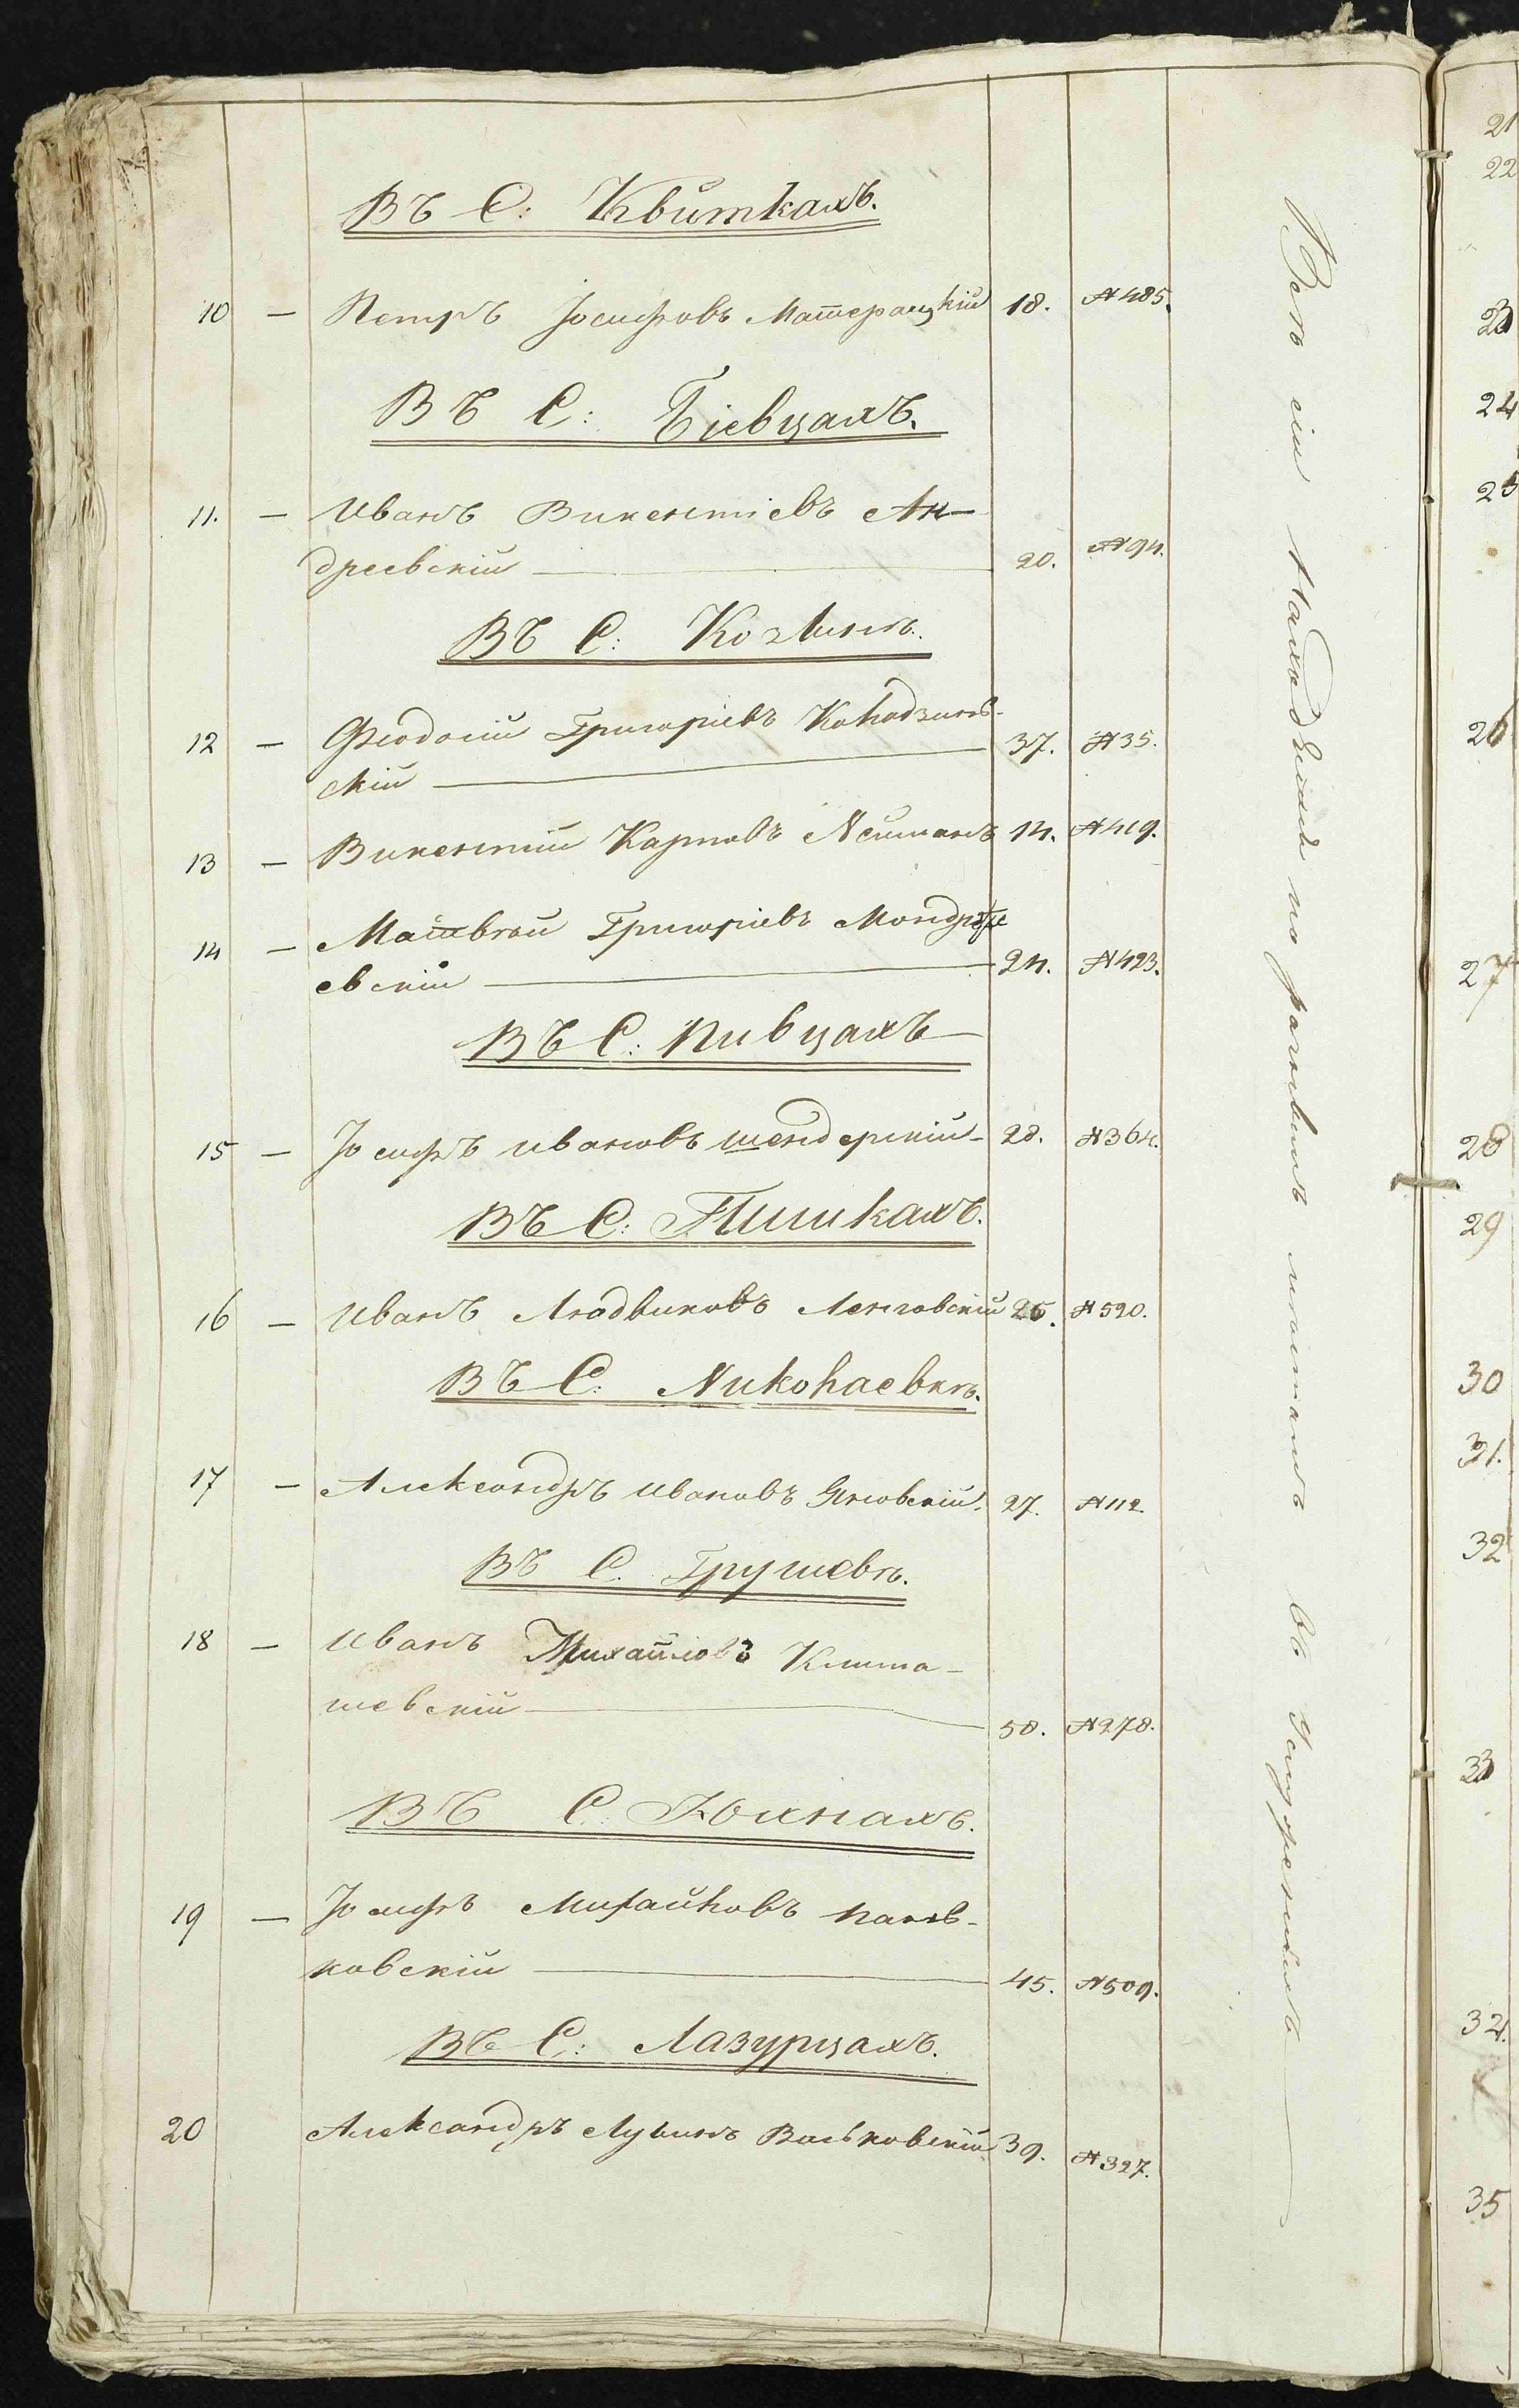 Въ С: Квиткахъ.
10 — Петръ Іосифовъ Матерацкій 18. №485.
Въ С: Біевцахъ.
11. — Иванъ Викентіевъ Ан-
дреевскій — 20. №94.
Въ С: Козинѣ.
12 — Феодосій Григоріевъ Колодзинь-
скій — 37. №35.
13 — Викентій Карповъ Нейманъ 14. №419.
14 — Матвѣй Григоріевъ Мондрже
евскій — 24. №423.
Въ С: Пивцахъ
15 — Іосифъ Ивановъ Шендерскій — 28. №364.
Въ С: Пѣшкахъ.
16 — Иванъ Людвиковъ Ленговскій 25. №520.
Въ С: Николаевкѣ.
17 — Александръ Ивановъ Яновскій. 27. №112.
Въ С. Грушевѣ.
18 — Иванъ Михайловъ Клима-
шевскій — 50. №278.
Въ С. Юхнахъ.
19 — Іосифъ Михайловъ Пань-
ковскій — 45. №509.
Въ С: Лазурцахъ.
20 Александръ Лукинъ Васьковскій 39. №327.
Всѣ сіи находящіеся по разнымъ мѣстамъ въ Услуженіи
21
22
23
24
25
26
27
28
29
30
31.
32
33
34.
35